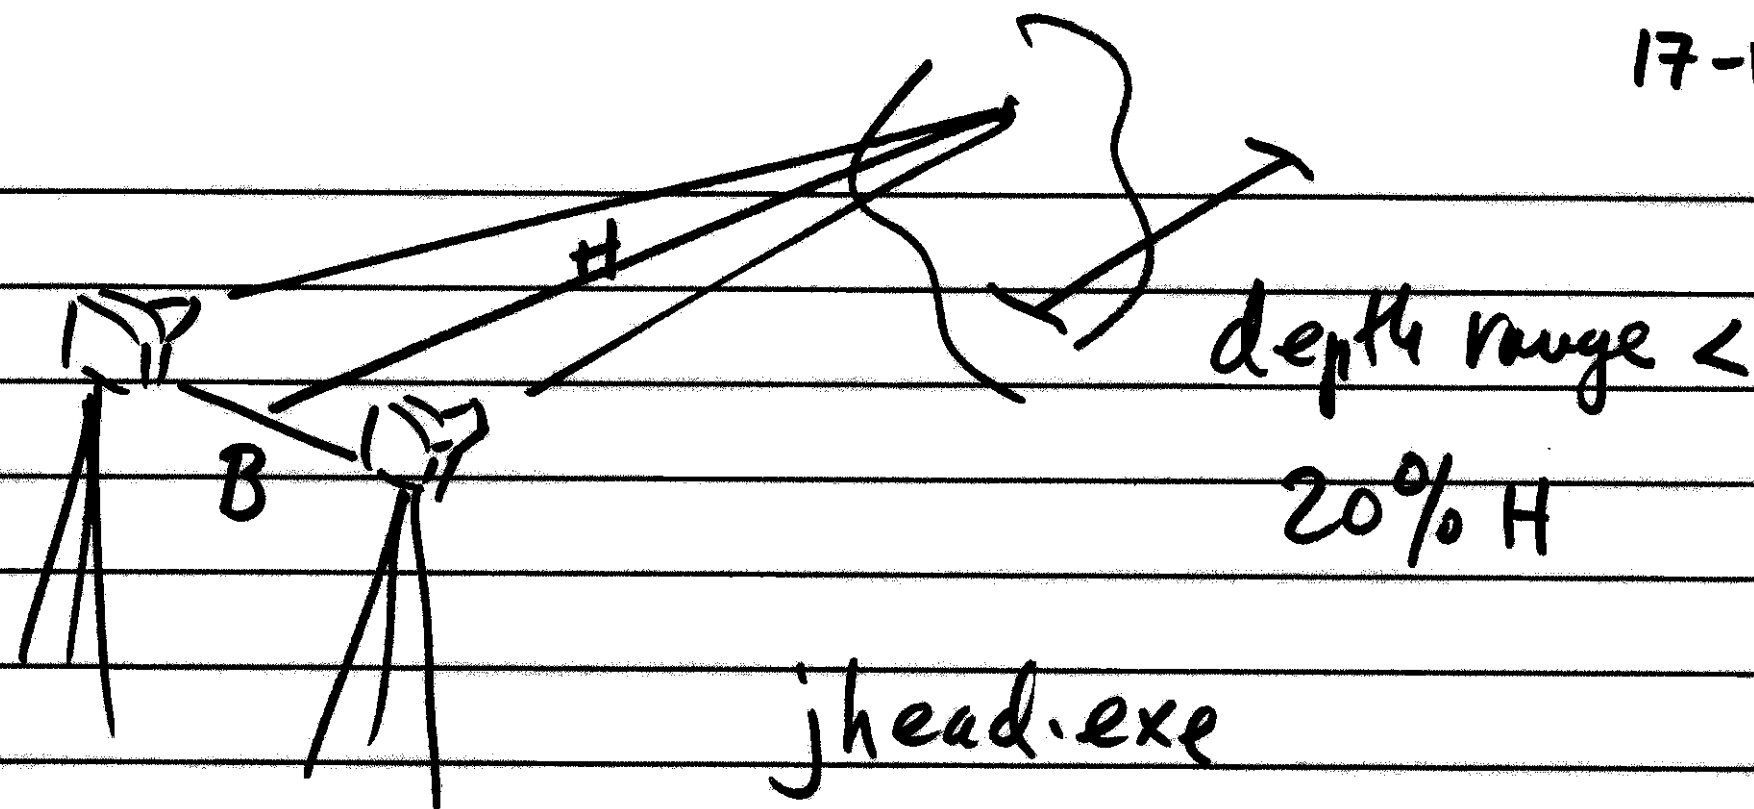 17-
H
depth range <
B
20% H
jhead.exe